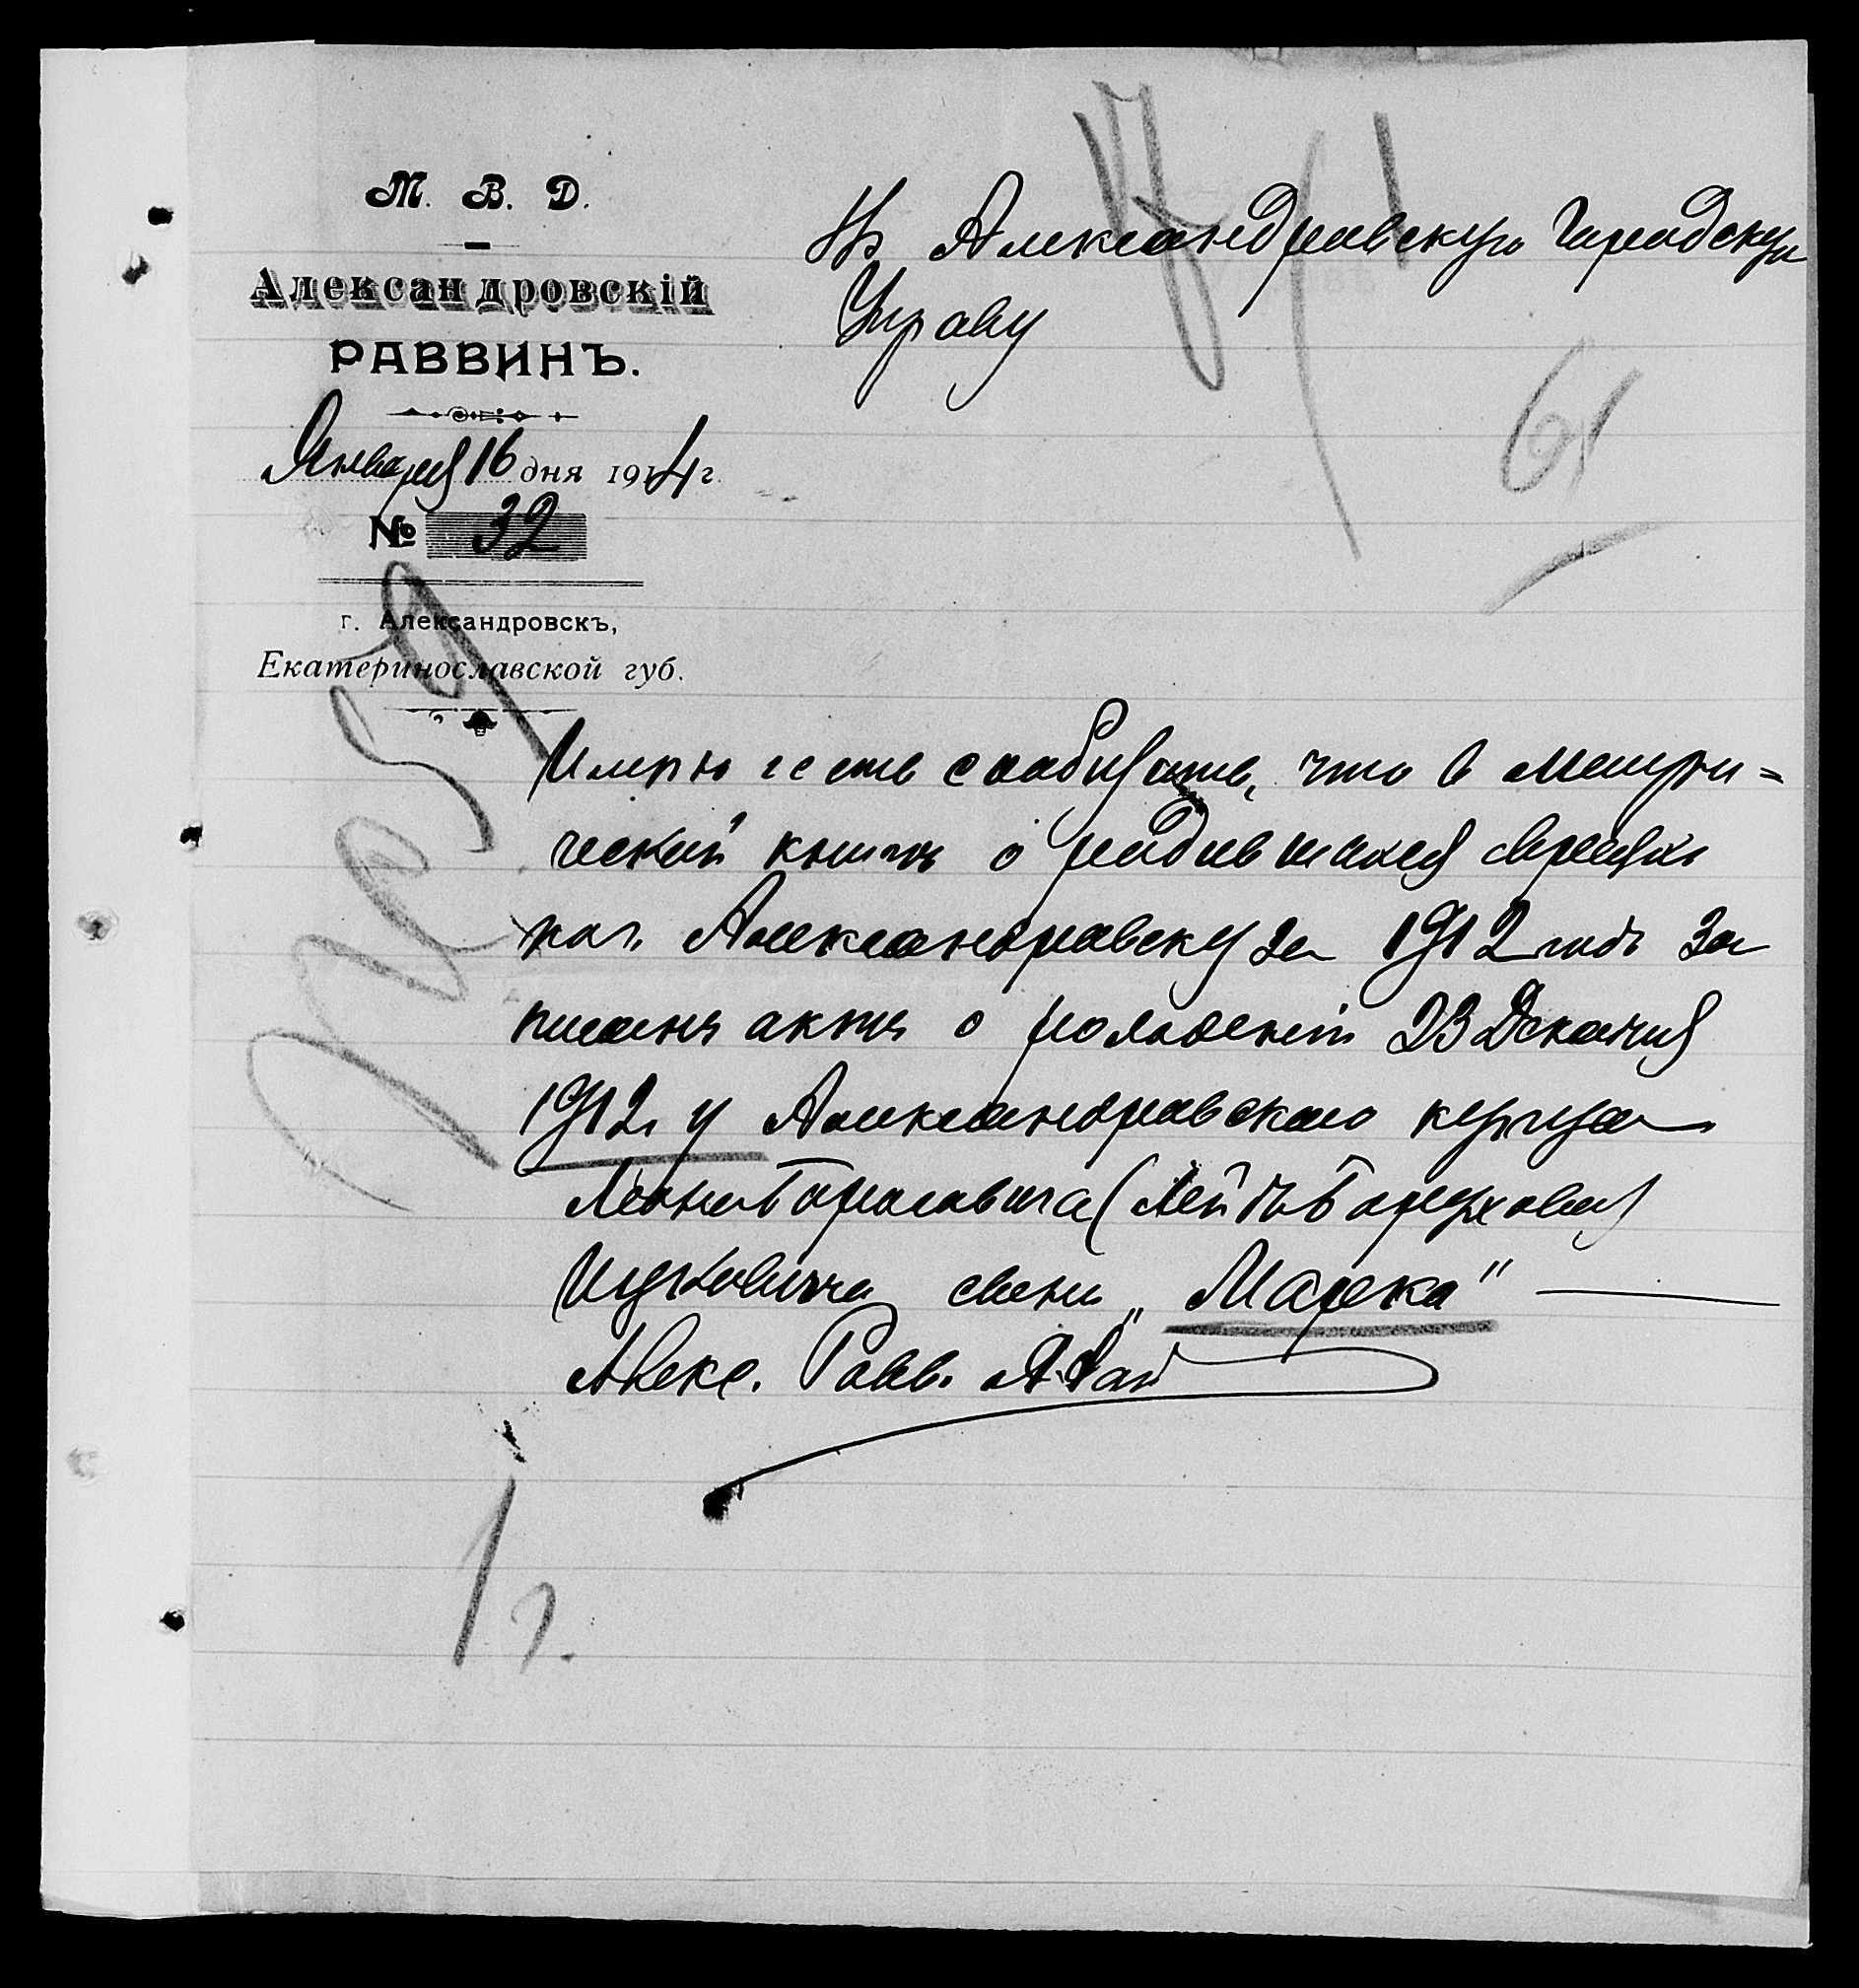 М. В. Д.
Александровскій
РАВВИНЪ.
Января 16 дня 1914 г.
№ 32
г. Александровскъ,
Екатеринославской губ.
Въ Александровскую Городскую
Управу
61
Имѣю честь сообщить, что в метри=
ческой книгѣ о родившихся евреяхъ
по г. Александровску за 1912 годъ за
писанъ актъ о рожденіи 23 Декабря
1912 г. у Александровскаго купца
Леона Борисовича (Лейбъ Боруховича
Ицковича сына „Марка"
Алекс. Равв.